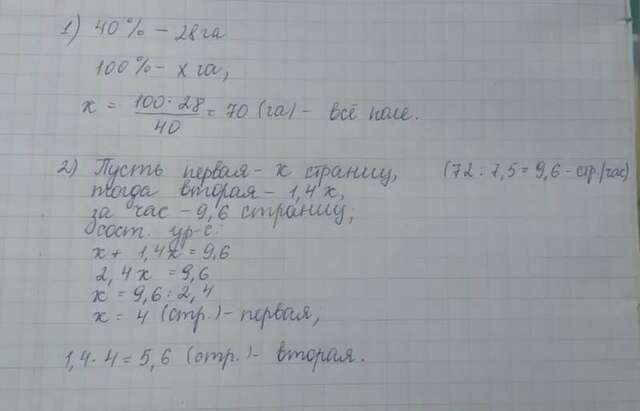 1) 40% – 28 га
100% – х га,
х = 100·28/40 = 70 (га) – всё поле.
2) Пусть первая – х страниц, (72 : 7,5 = 9,6 – стр./час)
тогда вторая – 1,4х,
за час – 9,6 страниц;
сост. ур-е:
х + 1,4х = 9,6
2,4х = 9,6
х = 9,6 : 2,4
х = 4 (стр.) – первая,
1,4 · 4 = 5,6 (стр.) – вторая.